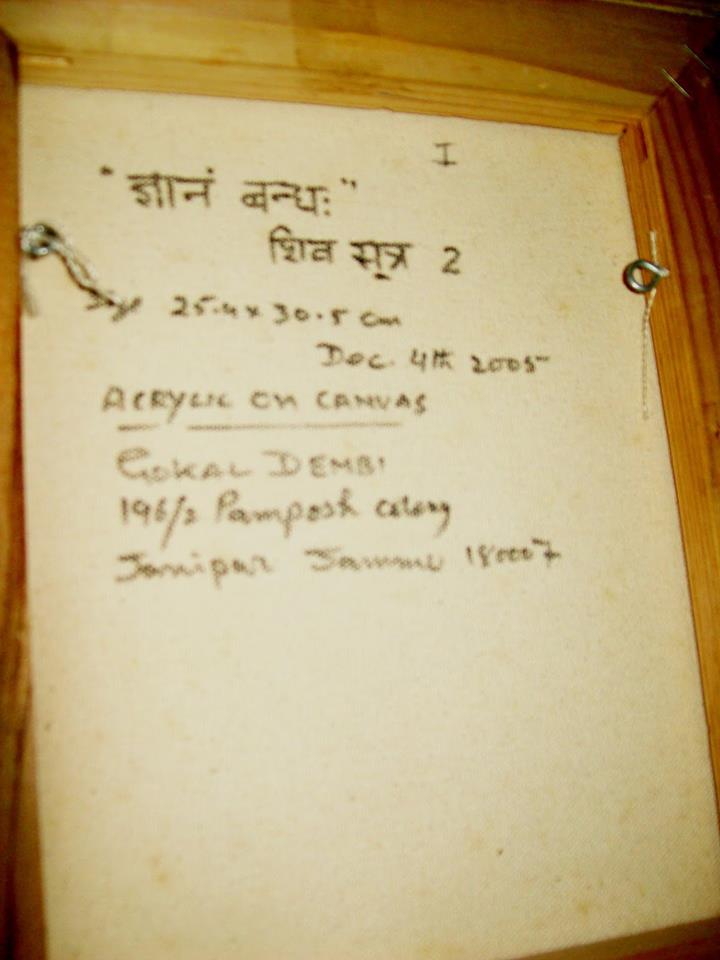 I
"ज्ञानं बन्धः"
शिव सूत्र 2
25.4 x 30.5 cm
Dec. 4th 2005
ACRYLIC ON CANVAS
GOKAL DEMBI
196/2 Pamposh colony
Janipur Jammu 180007